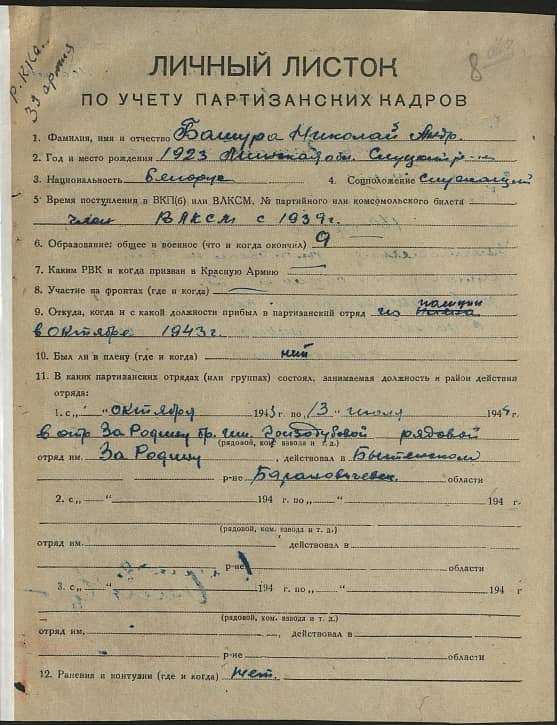 РККА.
33 армия
8
ЛИЧНЫЙ ЛИСТОК
ПО УЧЕТУ ПАРТИЗАНСКИХ КАДРОВ
1. Фамилия, имя и отчество Башура Николай Антр.
2. Год и место рождения 1923 Минская обл. Слуцкий р-н
3. Национальность белорус 4. Соцположение служащий
5. Время поступления в ВКП(б) или ВЛКСМ, № партийного или комсомольского билета
член ВЛКСМ с 1939г.
6. Образование: общее и военное (что и когда окончил) 9
7. Каким РВК и когда призван в Красную Армию —
8. Участие на фронтах (где и когда) —
полиции
9. Откуда, когда и с какой должности прибыл в партизанский отряд из
в октябре 1943г.
10. Был ли в плену (где и когда) нет
11. В каких партизанских отрядах (или группах) состоял, занимаемая должность и район действия
отряда:
1. с „ “ октября 1943 г. по „13“ июля 1944 г.
в отр За Родину бр. им. Гризодубовой рядовой
(рядовой, ком. взвода и т. д.)
отряд им. За Родину , действовал в Бытенском
р-не Барановичск. области
2. с „ “ 194 г. по „ “ 194 г.
(рядовой, ком. взвода и т. д.)
отряд им. действовал в
р-не области
3. с „ “ 194 г. по „ “ 194 г
(рядовой, ком. взвода и т. д.)
отряд им. , действовал в
р-не области
12. Ранения и контузии (где и когда) нет.